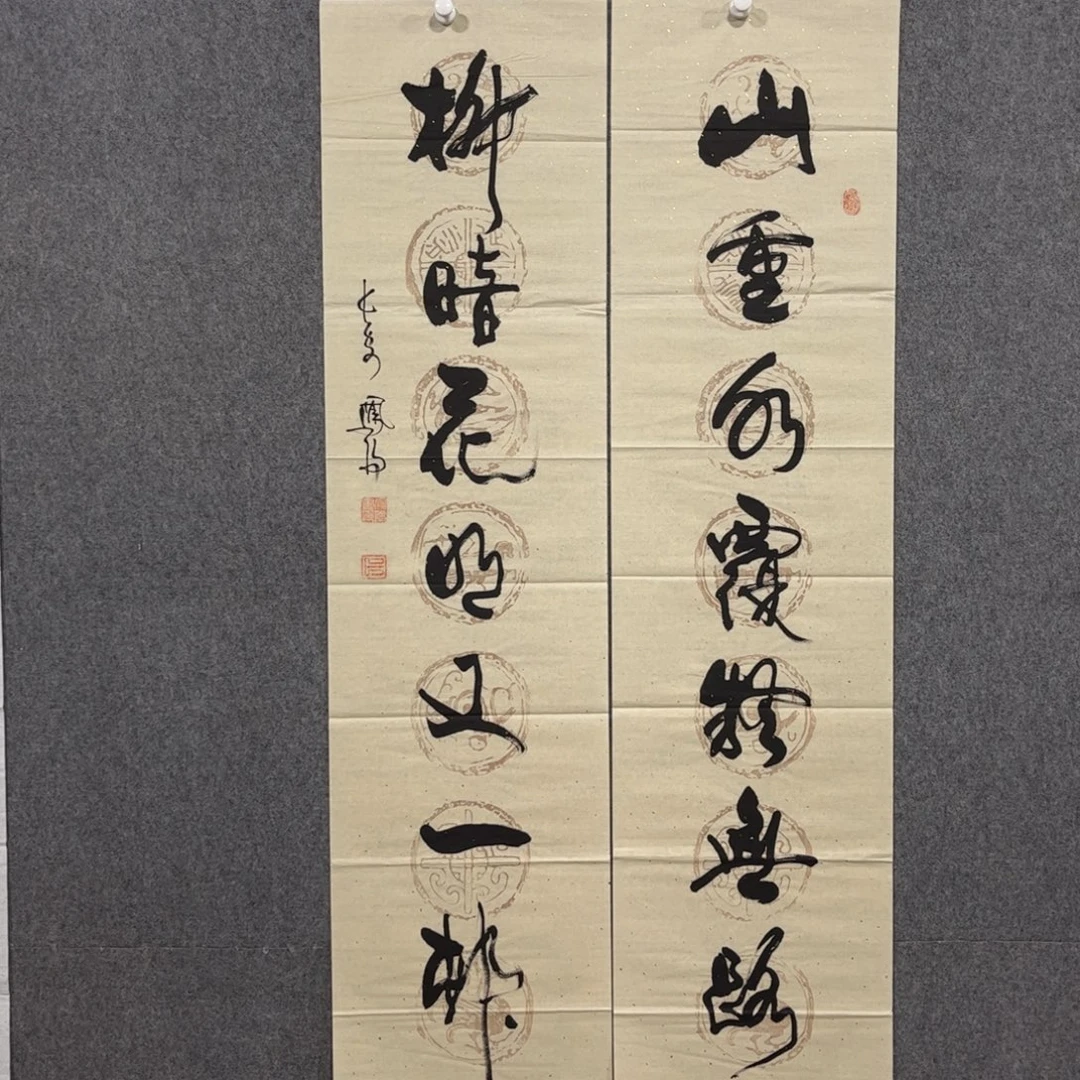 山重水覆疑無路
柳暗花明又一村